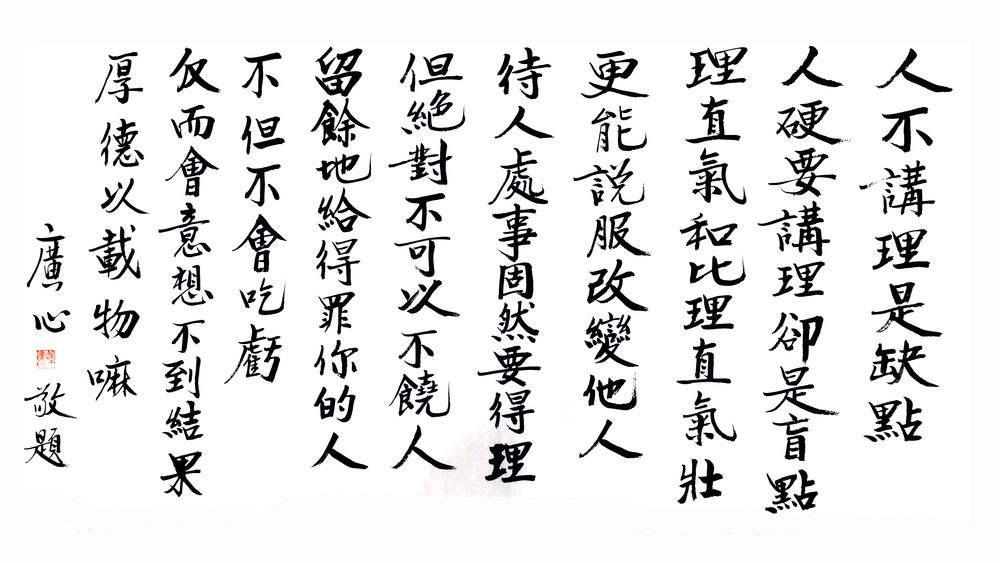 人不講理是缺點
人硬要講理卻是盲點
理直氣和比理直氣壯
更能説服改變他人
待人處事固然要得理
但絕對不可以不饒人
留餘地給得罪你的人
不但不會吃虧
反而會意想不到結果
厚德以載物嘛
廣心
敬題